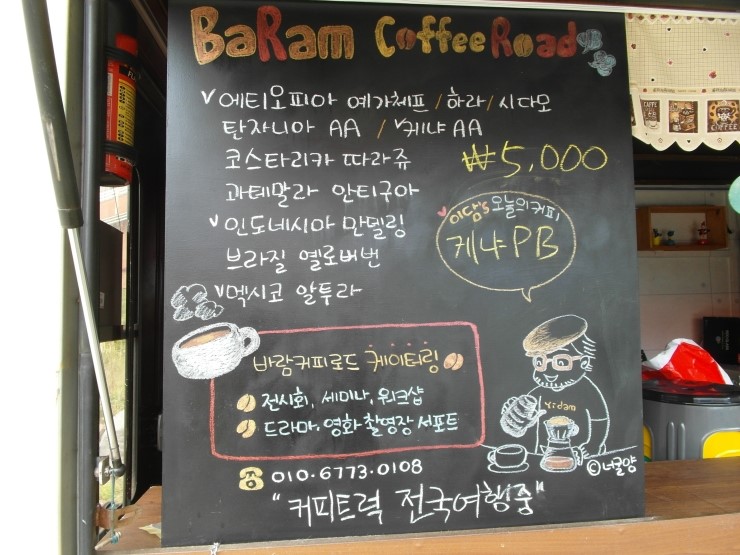 BaRam Coffee Road
√ 에티오피아 예가체프 / 하라 / 시다모
탄자니아 AA / √케냐 AA
코스타리카 따라쥬
₩5,000
과테말라 안티구아
이담's 오늘의커피
케냐PB
√ 인도네시아 만델링
브라질 옐로버번
√멕시코 알투라
바람커피로드 케이터링
전시회, 세미나, 워크샵
드라마. 영화 촬영장 서포트
yidam
☎ 010.6773.0108
©너굴양
"커피트럭 전국여행중"
COFFEE